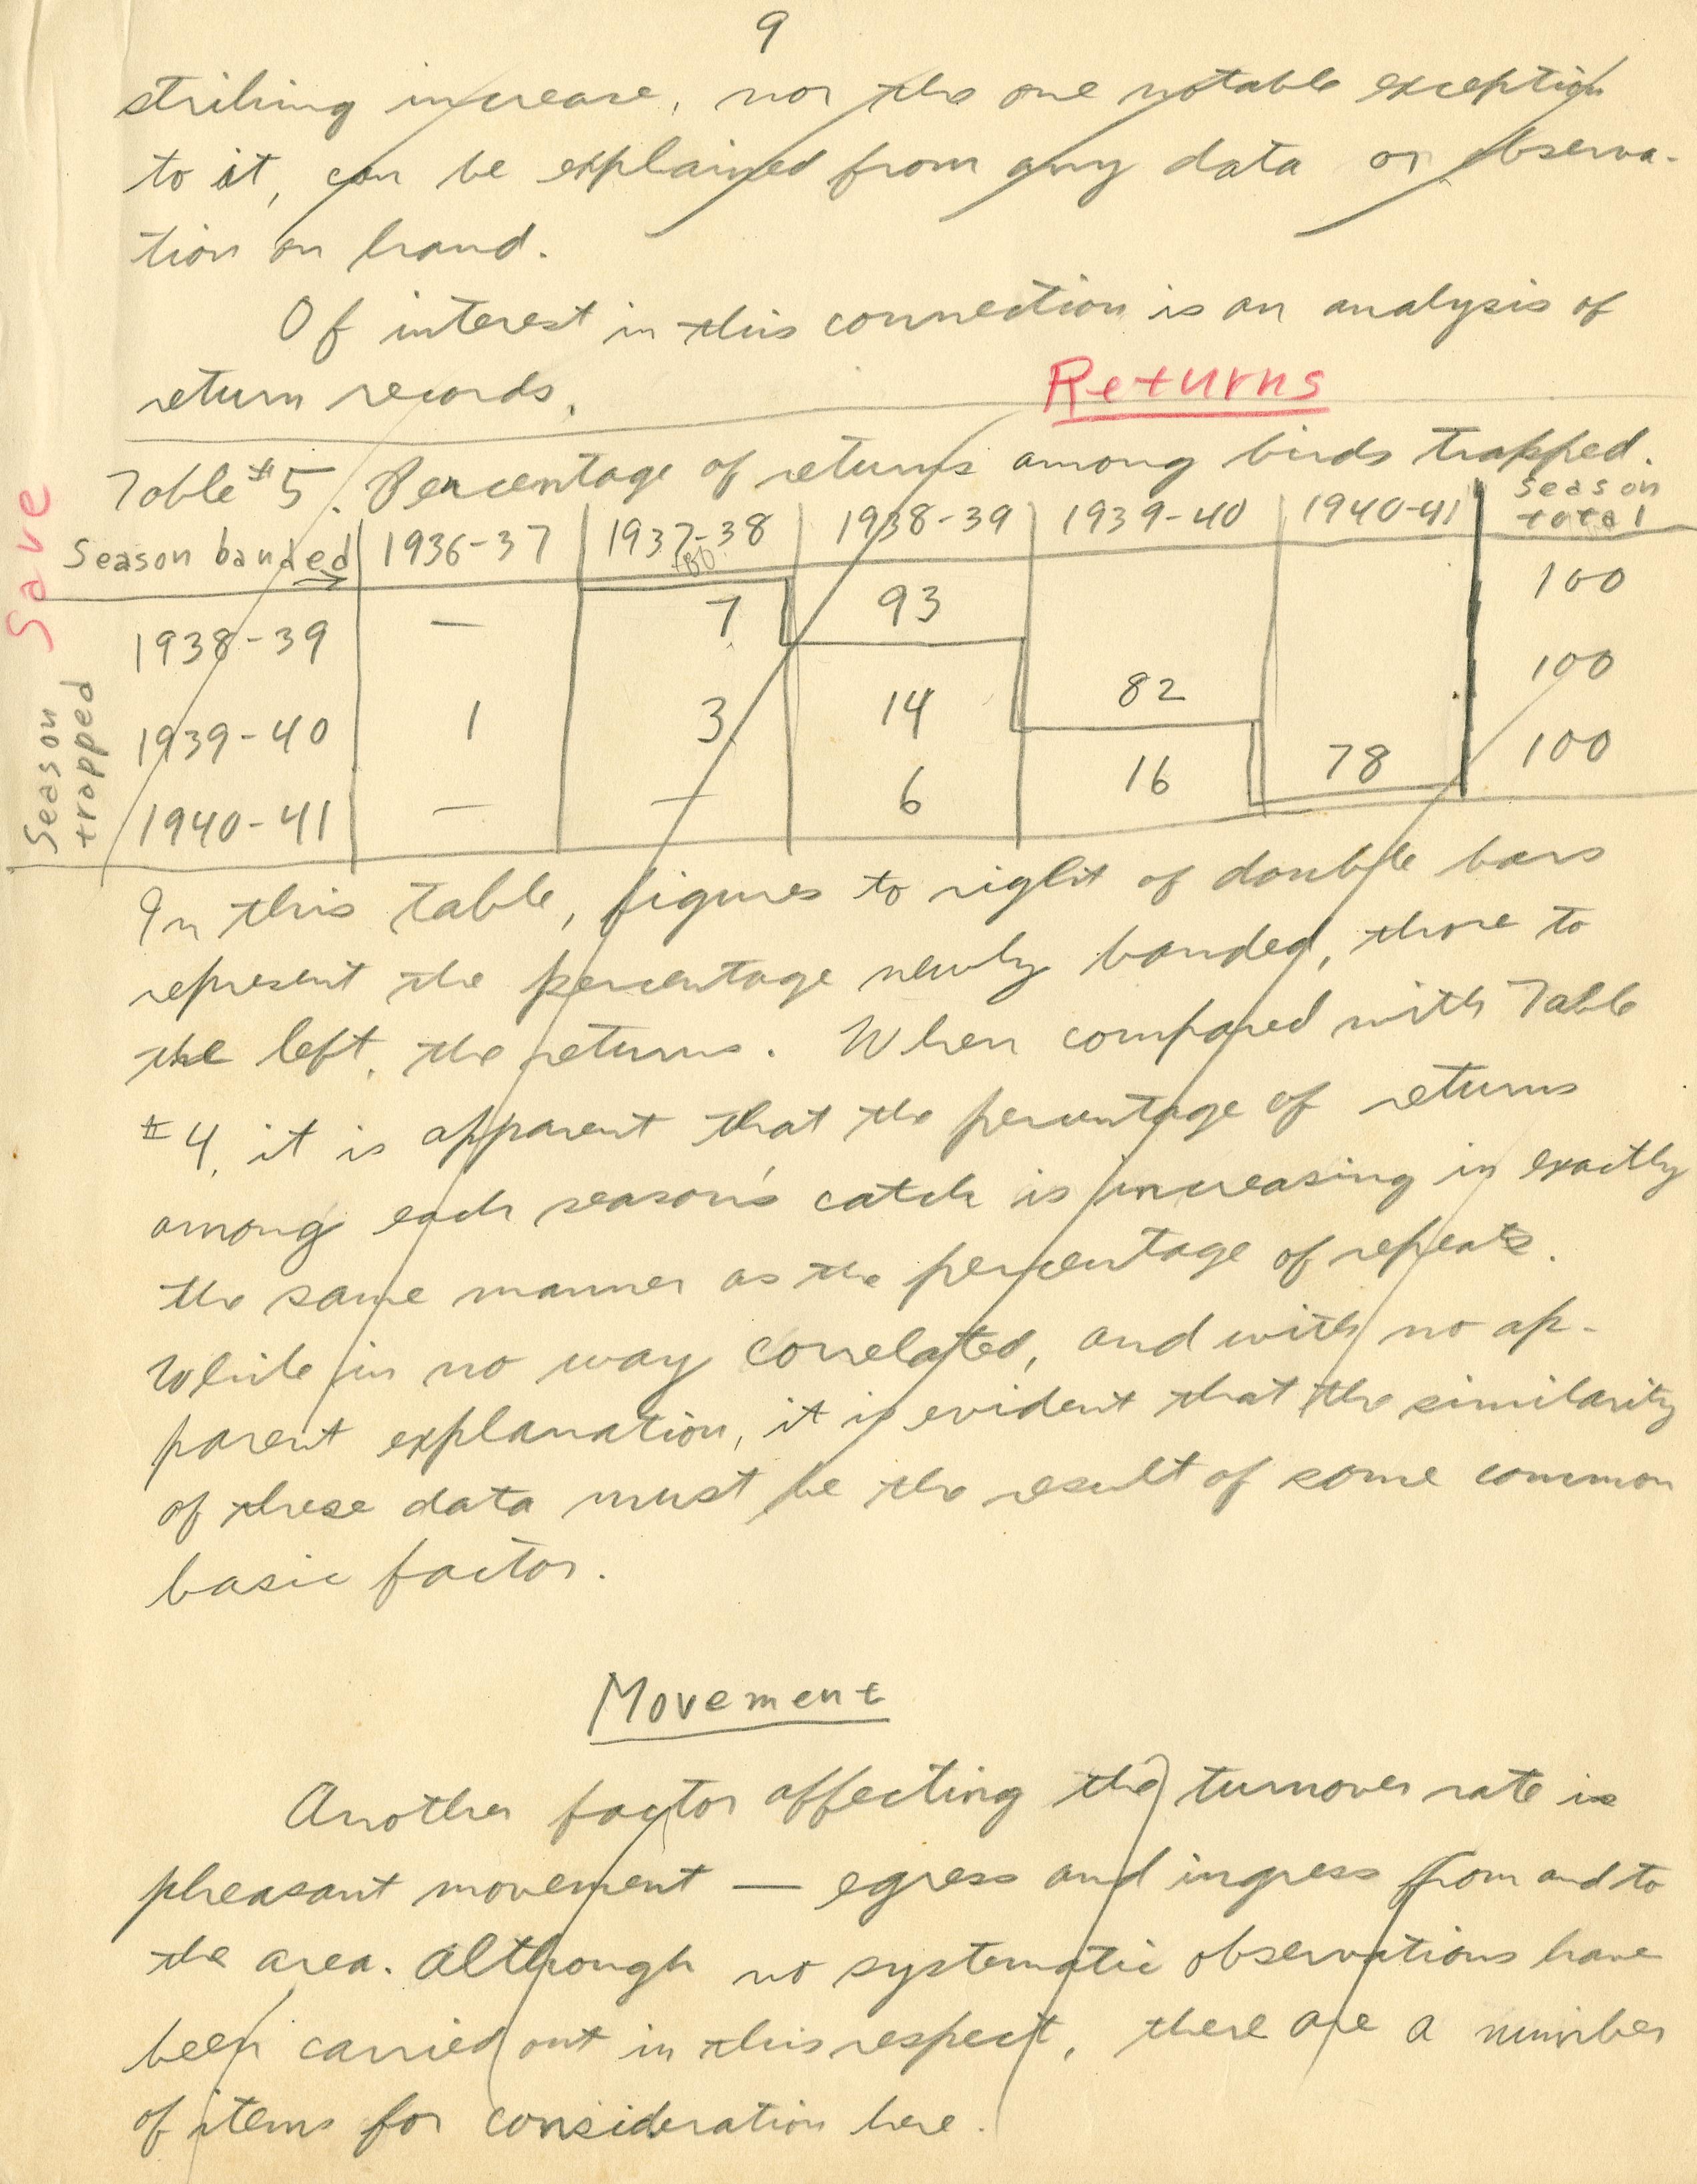 9
striking increase, nor the one notable exception
to it, can be explained from any data or observa-
tion on hand.
Of interest in this connection is an analysis of
return records.
Returns
Table #5. Percentage of returns among birds trapped.
Season banded → 1936-37 1937-38 1938-39 1939-40 1940-41 Season total
Save
Season trapped
1938-39 — 7 93 100
1939-40 1 3 14 82 100
1940-41 — — 6 16 78 100
In this table, figures to right of double bars
represent the percentage newly banded, those to
the left, the returns. When compared with Table
#4, it is apparent that the percentage of returns
among each season's catch is increasing in exactly
the same manner as the percentage of repeats.
While in no way correlated, and with no ap-
parent explanation, it is evident that the similarity
of these data must be the result of some common
basic factor.
Movement
Another factor affecting the turnover rate is
pheasant movement — egress and ingress from and to
the area. Although no systematic observations have
been carried out in this respect, there are a number
of items for consideration here.